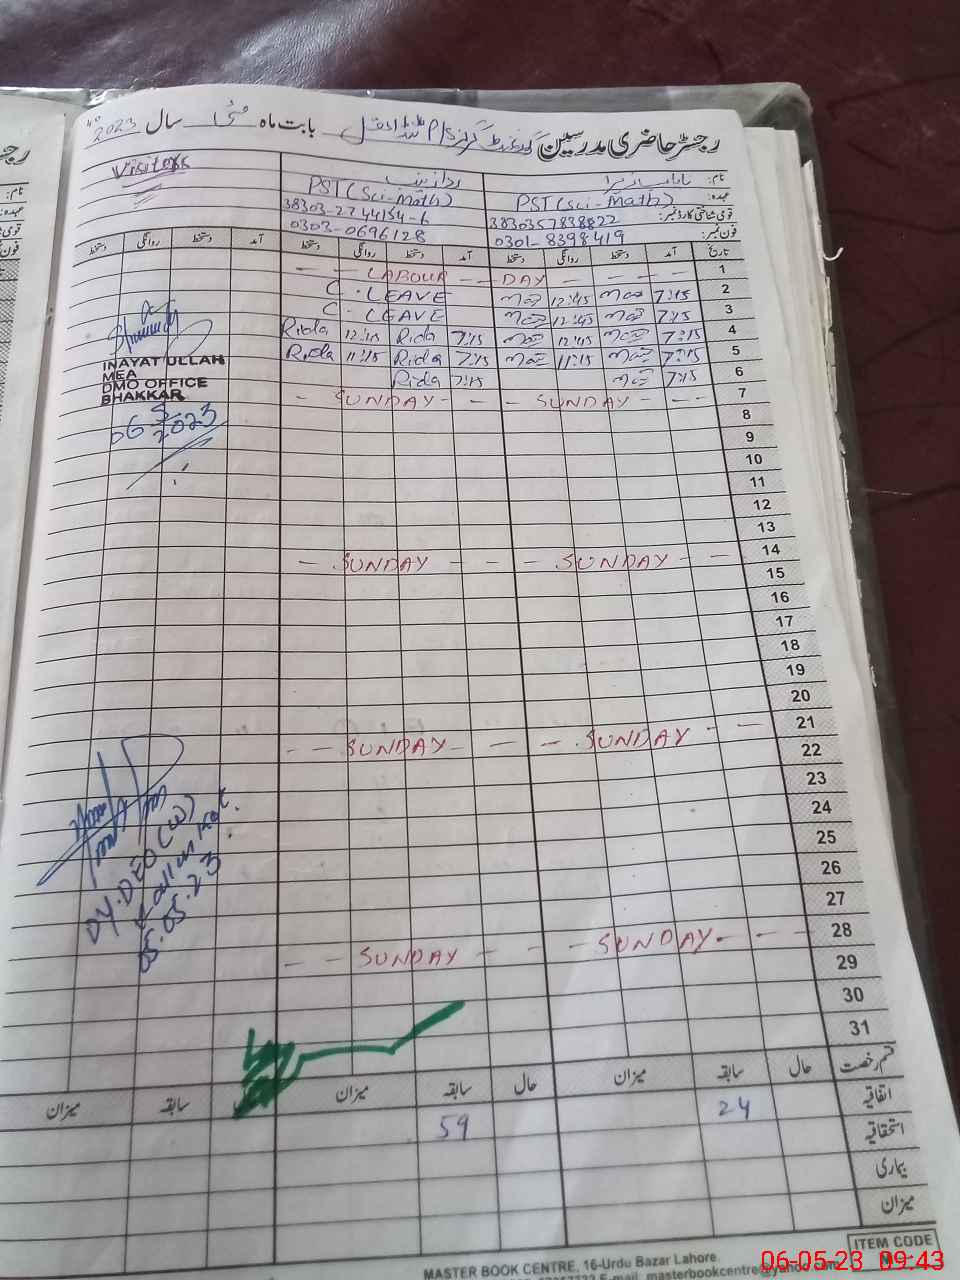 رجسٹر حاضری مدرسین گورنمنٹ گرلز P/S بابت ماہ مئی سال 2023
Visitors
نام:
عہدہ: PST (Sci-Math) PST (Sci-Math)
قومی شناختی کارڈ نمبر: 3830357838822 38303-2744154-6
فون نمبر: 0301-8398419 0303-0696128
تاریخ آمد دستخط روانگی دستخط آمد دستخط روانگی دستخط آمد دستخط روانگی دستخط
1 - - LABOUR - - DAY - - - -
2 7:15 12:45 C. LEAVE
3 7:15 12:45 C. LEAVE
4 7:15 12:15 7:15 Rida 12:15 Rida
5 7:15 11:15 7:15 Rida 11:15 Rida
6 7:15 7:15 Rida
7 - SUNDAY - - - SUNDAY - - -
8
9
10
11
12
13
14 - SUNDAY - - - SUNDAY - -
15
16
17
18
19
20
21 - - SUNDAY - - - SUNDAY - -
22
23
24
25
26
27
28 - - SUNDAY - - - SUNDAY. - - -
29
30
31
INAYAT ULLAH
MEA
DMO OFFICE
BHAKKAR
06 5/2023
DY. DEO (W)
Kallur Kot.
05.05.23
قسم رخصت حال سابقہ میزان حال سابقہ میزان سابقہ میزان
اتفاقیہ 24 59
استحقاقیہ
بیماری
میزان
ITEM CODE
MASTER BOOK CENTRE, 16-Urdu Bazar Lahore.
E-mail: masterbookcentre@yahoo.com
06-05-23 09:43